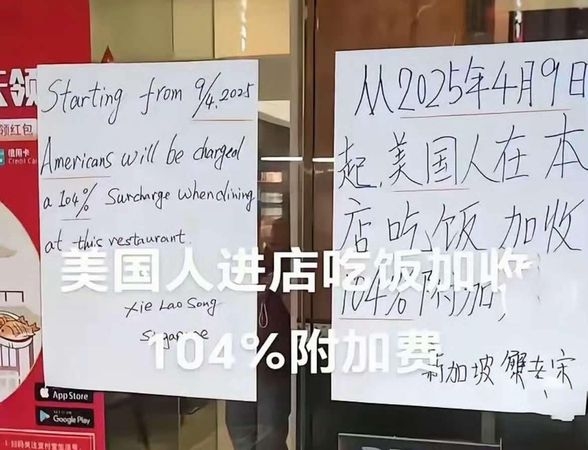 Starting from 9/4.2025
Americans will be charged
a 104% Surcharge when dining
at this restaurant.
Xie Lao Song
从2025年4月9日
起,美国人在本
店吃饭加收
104%附加
新加坡 蟹老宋
美国人进店吃饭加收
104%附加费
领
领红包
信用卡
Credit Car
App Store
Google Play